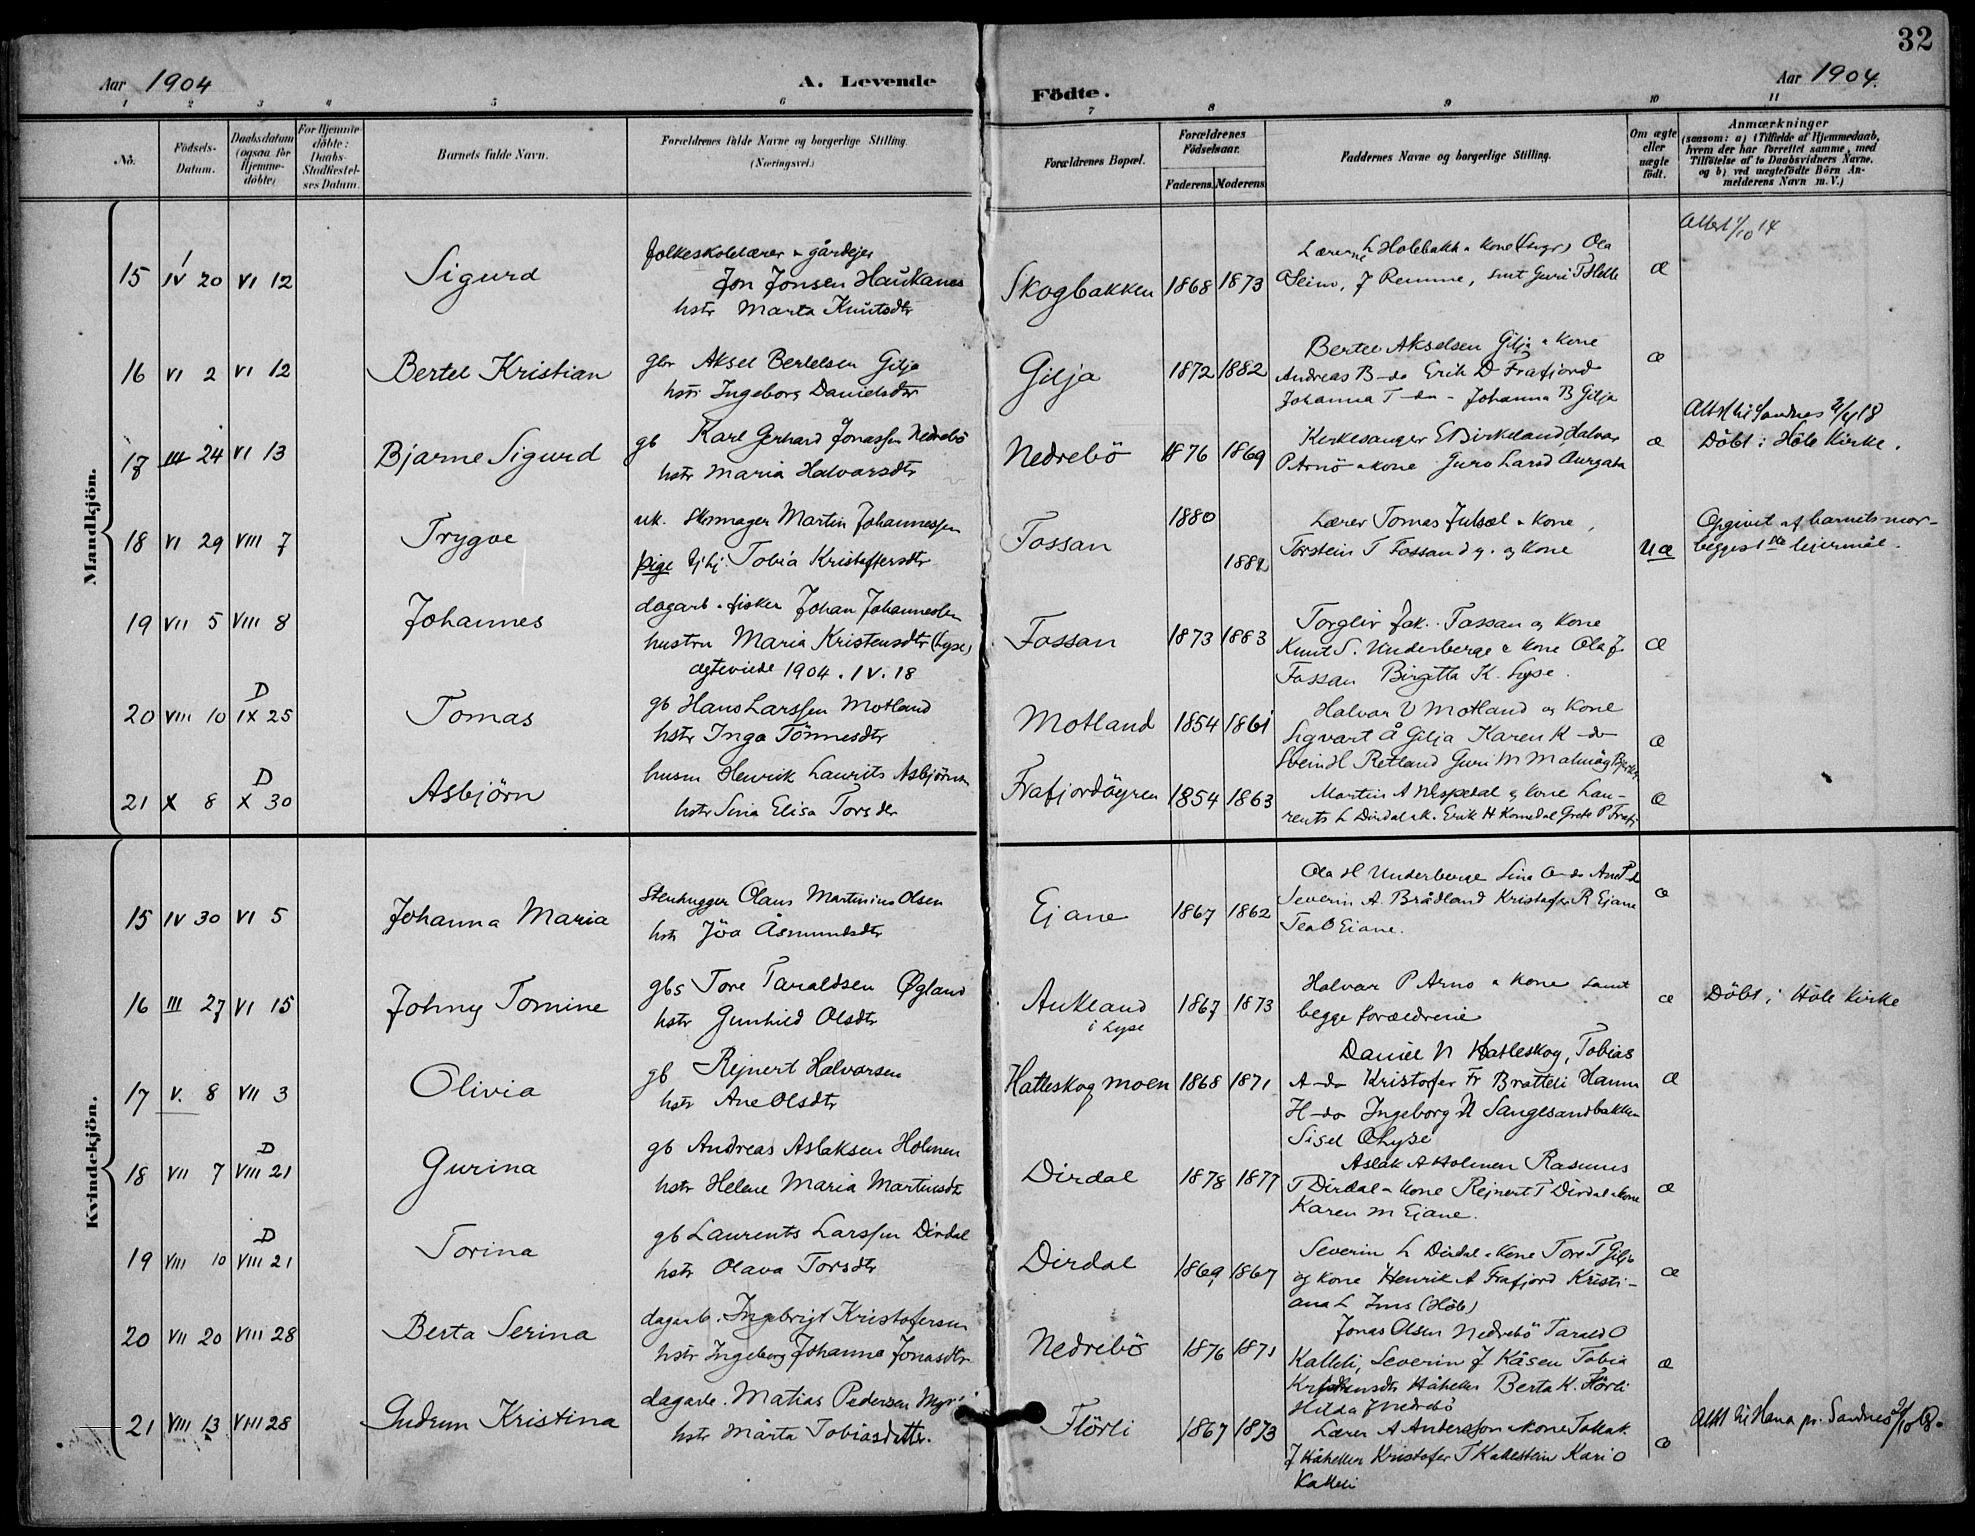 32
Aar 1904
A. Levende
Födte.
Aar 1904.
1 2 3 4 5 6 7 8 9 10 11
No.
Födsels-
Datum.
Daabsdatum
(ogsaa for
Hjemme-
döbte)
For Hjemme-
döbte:
Daabs-
Stadfæstel-
ses Datum.
Barnets fulde Navn.
Forældrenes fulde Navne og borgerlige Stilling.
(Næringsvei.)
Forældrenes Bopæl.
Forældrenes
Födselsaar.
Faderens. Moderens.
Faddernes Navne og borgerlige Stilling.
Om ægte
eller
uægte
födt.
Anmærkninger
(saasom: a) i Tilfælde af Hjemmedaab,
hvem der har forrettet samme, med
Tilföielse af to Daabsvidners Navne,
og b) ved uægtefödte Börn An-
melderens Navn m. V.)
Mandkjön.
15 IV 20 VI 12 Sigurd
folkeskolelærer & gårdejer
Jon Jonsen Haukanes
hstr Marta Knutsdtr
Skogbakken 1868 1873
Lærerne L Holebakk & kone Ola
Seim, J Remme, smt Guri T Helle
æ
Attest 1/10 14
16 VI 2 VI 12 Bertel Kristian
gbr Aksel Bertelsen Gilja
hstr Ingeborg Danielsdtr
Gilja 1872 1882
Bertel Akselsen Gilja & kone
Andreas B-do Erik D Frafjord
Johanna T-do - Johanna B Gilja
æ
17 III 24 VI 13 Bjarne Sigurd
gb Karl Gerhard Jonassen Nedrebö
hstr Maria Halvarsdtr
Nedrebö 1876 1869
Kirkesanger E Birkeland Halvar
P Arnö & kone Guro Larsd
æ
Döbt i Höle Kirke.
18 VI 29 VIII 7 Trygve
uk. Skomager Martin Johannessen
pige Tobia Kristoffersdtr
Fossan 1880
1882
Lærer Tomas Julsæl & kone,
Torstein T Fossan d y. og kone
uæ
Opgivet af barnets mor-
begges lejermål.
19 VII 5 VIII 8 Johannes
dagarb & fisker Johan Johannessen
hustru Maria Kristensdtr (Lyse)
ægteviede 1904. IV. 18
Fossan 1873 1883
Torgeir Jak. Fossan og kone
Knut S. Underberge & kone Ola J.
Fossan Birgitta K. Lyse.
æ
20 VIII 10 D IX 25 Tomas
gb Hans Larssen Motland
hstr Inga Tönnesdtr
Motland 1854 1861
Halvar V Motland og kone
Sigvart Å Gilja Karen K-do
Svein H Retland Guri M
æ
21 X 8 D X 30 Asbjörn
husm Henrik Laurits Asbjörnsn
hstr Sina Elisa Torsdtr
Frafjordöyren 1854 1863
Martin A Nespedal & kone Lau-
rents L Dirdal uk. Erik H Komedal Grete P Frafj
æ
Kvindekjön.
15 IV 30 VI 5 Johanna Maria
Stenhugger Olaus Martinius Olsen
hstr Jöa Åsmundsdtr
Ejane 1867 1862
Ola H Underberge Lina O-do
Severin A Brådland Kristofer R Ejane
Tea O Ejane.
æ
16 III 27 VI 15 Johny Tomine
gbs Tore Taraldsen Øgland
hstr Gunhild Olsdtr
Aukland
i Lyse
1867 1873
Halvar P Arnö & kone samt
begge forældrene
æ
Döbt i Höle Kirke
17 V. 8 VII 3 Olivia
gb Rejnert Halvorsen
hstr Ane Olsdtr
Hatleskog moen 1868 1871
Daniel N Hatleskog, Tobias
A-do Kristofer Fr Bratteli Hanna
H-do Ingeborg N Sangesandbakken
Sisel O Lyse
æ
18 VII 7 D VIII 21 Gurina
gb Andreas Aslaksen Holmen
hstr Helene Maria Martinsdtr
Dirdal 1878 1877
Aslak A Holmen Rasmus
T Dirdal & kone Rejnert T Dirdal & kone
Karen M Ejane.
æ
19 VIII 10 D VIII 21 Torina
gb Laurents Larssen Dirdal
hstr Olava Torsdtr
Dirdal 1869 1867
Severin L Dirdal & kone Tore T Gilja
og kone Henrik A Frafjord Kristi-
ana L Ims (Höle)
æ
20 VII 20 VIII 28 Berta Serina
dagarb. Ingebrigt Kristofersen
hstr Ingeborg Johanne Jonasdtr
Nedrebö 1876 1871
Jonas Olsen Nedrebö Tarald O
Kalleli, Severin J Kåsen Tobia
Kristensdtr Håheller Berta K. Flörli
Hilda J Nedrebö
æ
21 VIII 13 VIII 28 Gudrun Kristina
dagarb. Matias Pedersen
hstr Marta Tobiasdatter.
Flörli 1867 1873
Lærer A Anderssson & kone
J Håheller Kristofer T Kallestein Kari O
Kalleli
æ